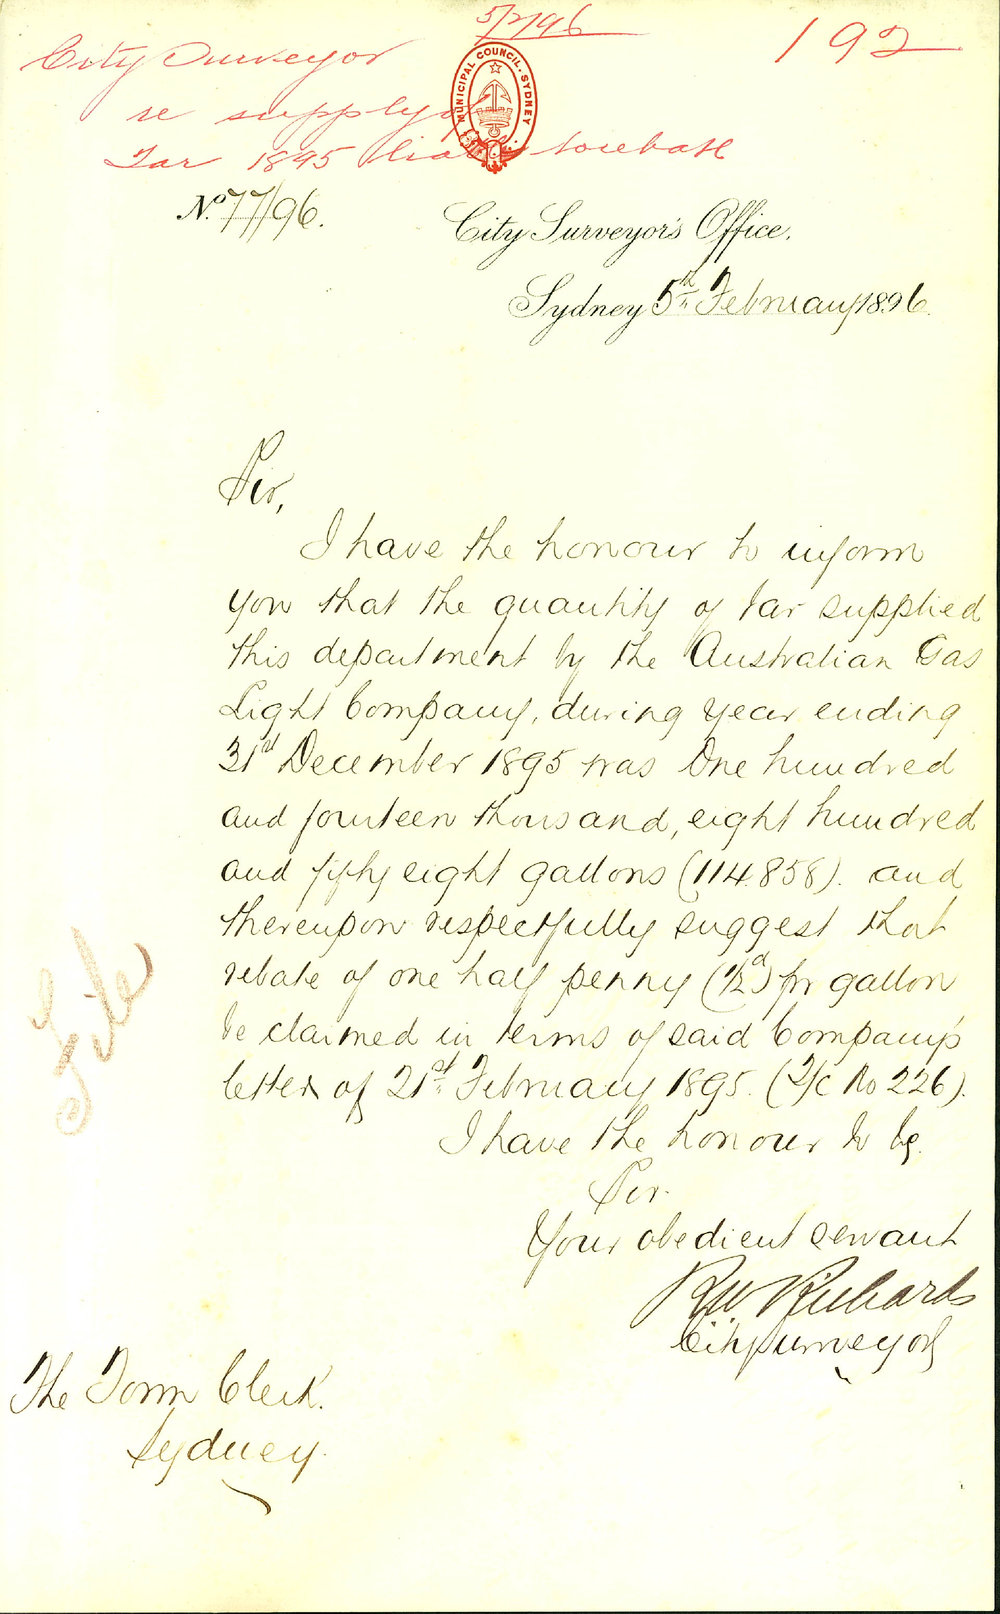 5/2/96
192
City Surveyor
re supply of
Tar 1895 liable to rebate
MUNICIPAL COUNCIL. SYDNEY
No. 77/96.
City Surveyor's Office.
Sydney 5th February 1896.
Sir,
I have the honour to inform
you that the quantity of tar supplied
this department by the Australian Gas
Light Company, during year ending
31st December 1895 was One hundred
and fourteen thousand, eight hundred
and fifty eight gallons (114.858). and
thereupon respectfully suggest that
rebate of one half penny (1/2d) pr gallon
be claimed in terms of said Company's
letter of 21st February 1895. (T/C No 226).
I have the honour to be
Sir.
Your obedient servant
RW Richards
City Surveyor
File
The Town Clerk.
Sydney.